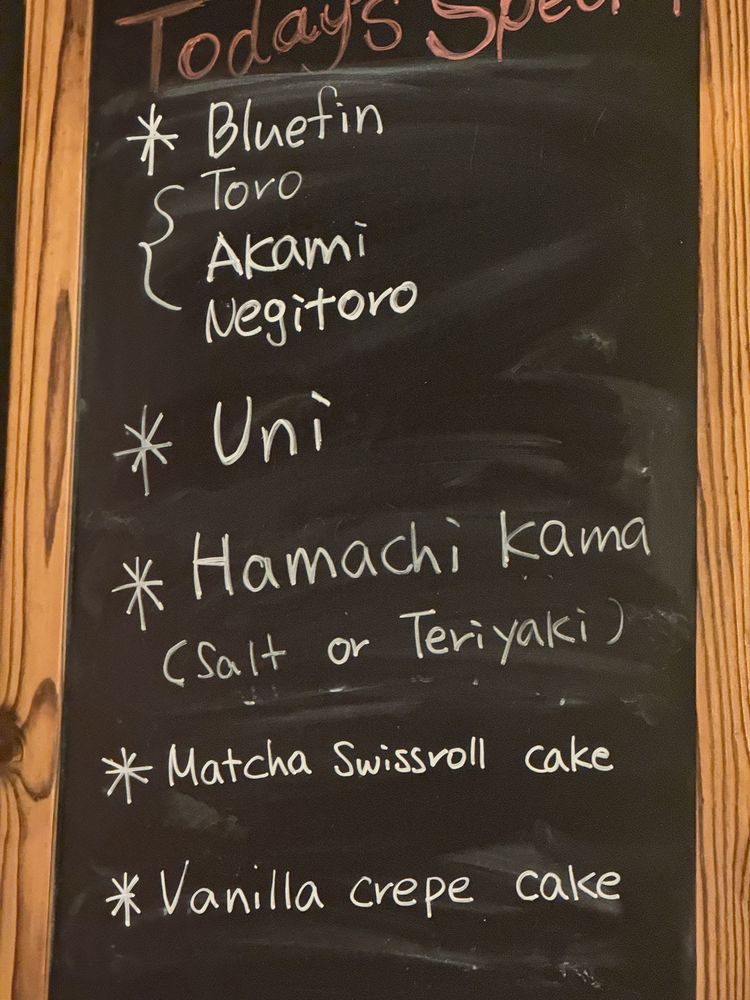 Todays
* Bluefin
Toro
Akami
Negitoro
* Uni
* Hamachi kama
(Salt or Teriyaki)
* Matcha Swissroll cake
* Vanilla crepe cake